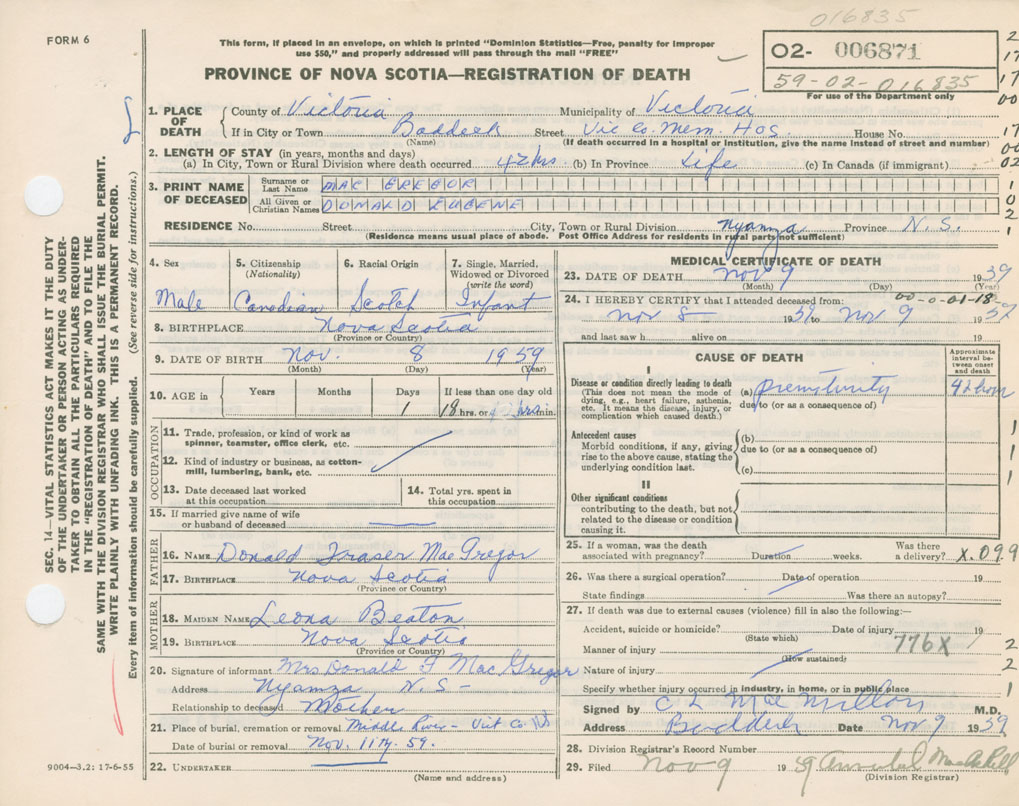 016835
FORM 6
This form, if placed in an envelope, on which is printed "Dominion Statistics—Free, penalty for improper
use $50," and properly addressed will pass through the mail "FREE"
02- 006871
59-02-016835
For use of the Department only
PROVINCE OF NOVA SCOTIA—REGISTRATION OF DEATH
SEC. 14—VITAL STATISTICS ACT MAKES IT THE DUTY
OF THE UNDERTAKER OR PERSON ACTING AS UNDER-
TAKER TO OBTAIN ALL THE PARTICULARS REQUIRED
IN THE "REGISTRATION OF DEATH" AND TO FILE THE
SAME WITH THE DIVISION REGISTRAR WHO SHALL ISSUE THE BURIAL PERMIT.
WRITE PLAINLY WITH UNFADING INK. THIS IS A PERMANENT RECORD.
Every item of information should be carefully supplied. (See reverse side for instructions.)
1. PLACE OF DEATH County of Victoria Municipality of Victoria
If in City or Town Baddeck Street Vic Co. Mem. Hos. House No.
(Name) (If death occurred in a hospital or institution, give the name instead of street and number)
2. LENGTH OF STAY (in years, months and days)
(a) In City, Town or Rural Division where death occurred 42 hrs. (b) In Province Life (c) In Canada (if immigrant)
3. PRINT NAME OF DECEASED Surname or Last Name MAC GREGOR
All Given or Christian Names DONALD EUGENE
RESIDENCE No. Street City, Town or Rural Division Nyanza Province N.S.
(Residence means usual place of abode. Post Office Address for residents in rural parts not sufficient)
4. Sex 5. Citizenship (Nationality) 6. Racial Origin 7. Single, Married, Widowed or Divorced (write the word)
Male Canadian Scotch Infant
8. BIRTHPLACE Nova Scotia
(Province or Country)
9. DATE OF BIRTH Nov. 8 1959
(Month) (Day) (Year)
10. AGE in Years Months Days If less than one day old
1 18 hrs. or 42 hrs min.
OCCUPATION
11. Trade, profession, or kind of work as
spinner, teamster, office clerk, etc.
12. Kind of industry or business, as cotton-
mill, lumbering, bank, etc.
13. Date deceased last worked
at this occupation
14. Total yrs. spent in
this occupation
15. If married give name of wife
or husband of deceased
FATHER
16. NAME Donald Fraser MacGregor
17. BIRTHPLACE Nova Scotia
(Province or Country)
MOTHER
18. MAIDEN NAME Leona Beaton
19. BIRTHPLACE Nova Scotia
(Province or Country)
20. Signature of informant Mrs Donald F MacGregor
Address Nyamza N.S—
Relationship to deceased Mother
21. Place of burial, cremation or removal Middle River— Vict Co. NS
Date of burial or removal Nov. 11th. 59.
22. UNDERTAKER
(Name and address)
9004—3.2: 17-6-55
MEDICAL CERTIFICATE OF DEATH
23. DATE OF DEATH Nov 9 1959
(Month) (Day) (Year)
00-0-01-18-
24. I HEREBY CERTIFY that I attended deceased from:
Nov 8 1959 to Nov 9 1959
and last saw h alive on 19
CAUSE OF DEATH
Approximate
interval be-
tween onset
and death
I
Disease or condition directly leading to death
(This does not mean the mode of
dying, e.g., heart failure, asthenia,
etc. It means the disease, injury, or
complication which caused death.)
(a) prematurity 42 hour
due to (or as a consequence of)
Antecedent causes
Morbid conditions, if any, giving
rise to the above cause, stating the
underlying condition last.
(b)
due to (or as a consequence of)
(c)
II
Other significant conditions
contributing to the death, but not
related to the disease or condition
causing it.
25. If a woman, was the death
associated with pregnancy? Duration weeks. Was there
a delivery? X.099
26. Was there a surgical operation? Date of operation 19
State findings Was there an autopsy?
27. If death was due to external causes (violence) fill in also the following:—
Accident, suicide or homicide? Date of injury 19
(State which)
Manner of injury 776X
(How sustained)
Nature of injury
Specify whether injury occurred in industry, in home, or in public place
Signed by C L MacMillan M.D.
Address Baddeck Date Nov 9 1959
28. Division Registrar's Record Number
29. Filed Nov 9 1959 Annabel MacAskill
(Division Registrar)